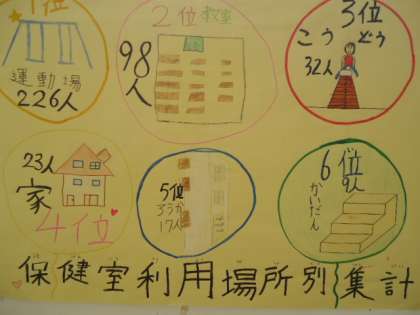 1位
運動場
226人
2位 教室
98人
3位
こうどう
32人
23人
家
4位
5位
ろうか
17人
6位
9人
かいだん
保健室利用場所別集計